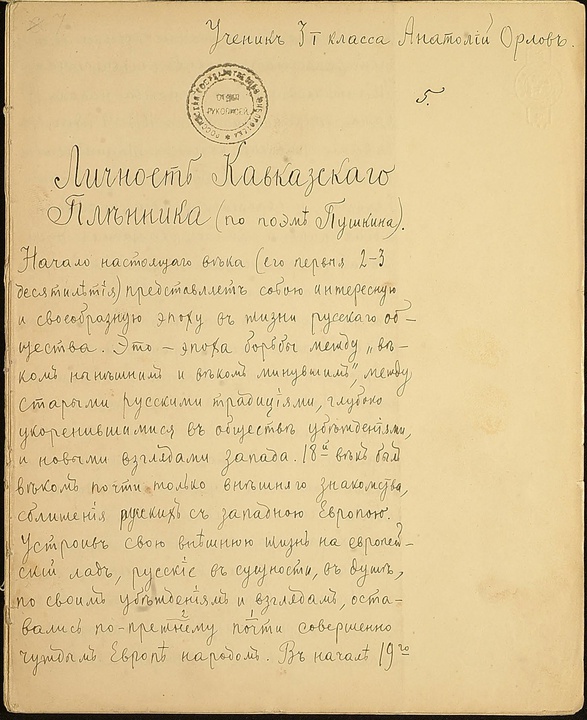 Ученикъ 3г класса Анатолій Орловъ.
5.
РОССІЙСКАЯ ГОСУДАРСТВЕННАЯ БИБЛІОТЕКА
ОТДЕЛ
РУКОПИСЕЙ
Личность Кавказскаго
Плѣнника (по поэмѣ Пушкина).
Начало настоящаго вѣка (его первыя 2-3
десятилѣтія) представляетъ собою интересную
и своеобразную эпоху въ жизни русскаго об-
щества. Это – эпоха борьбы между „вѣ-
комъ нынѣшнимъ и вѣкомъ минувшимъ”, между
старыми русскими традиціями, глубоко
укоренившимися въ обществѣ убѣжденіями,
и новыми взглядами запада. 18й вѣкъ былъ
вѣкомъ почти только внѣшняго знакомства,
сближенія русскихъ съ западною Европою.
Устроивъ свою внѣшнюю жизнь на европей-
скій ладъ, русскіе въ сущности, въ душѣ,
по своимъ убѣжденіямъ и взглядамъ, оста-
вались по-прежнему почти совершенно
чуждымъ Европѣ народомъ. Въ началѣ 19го